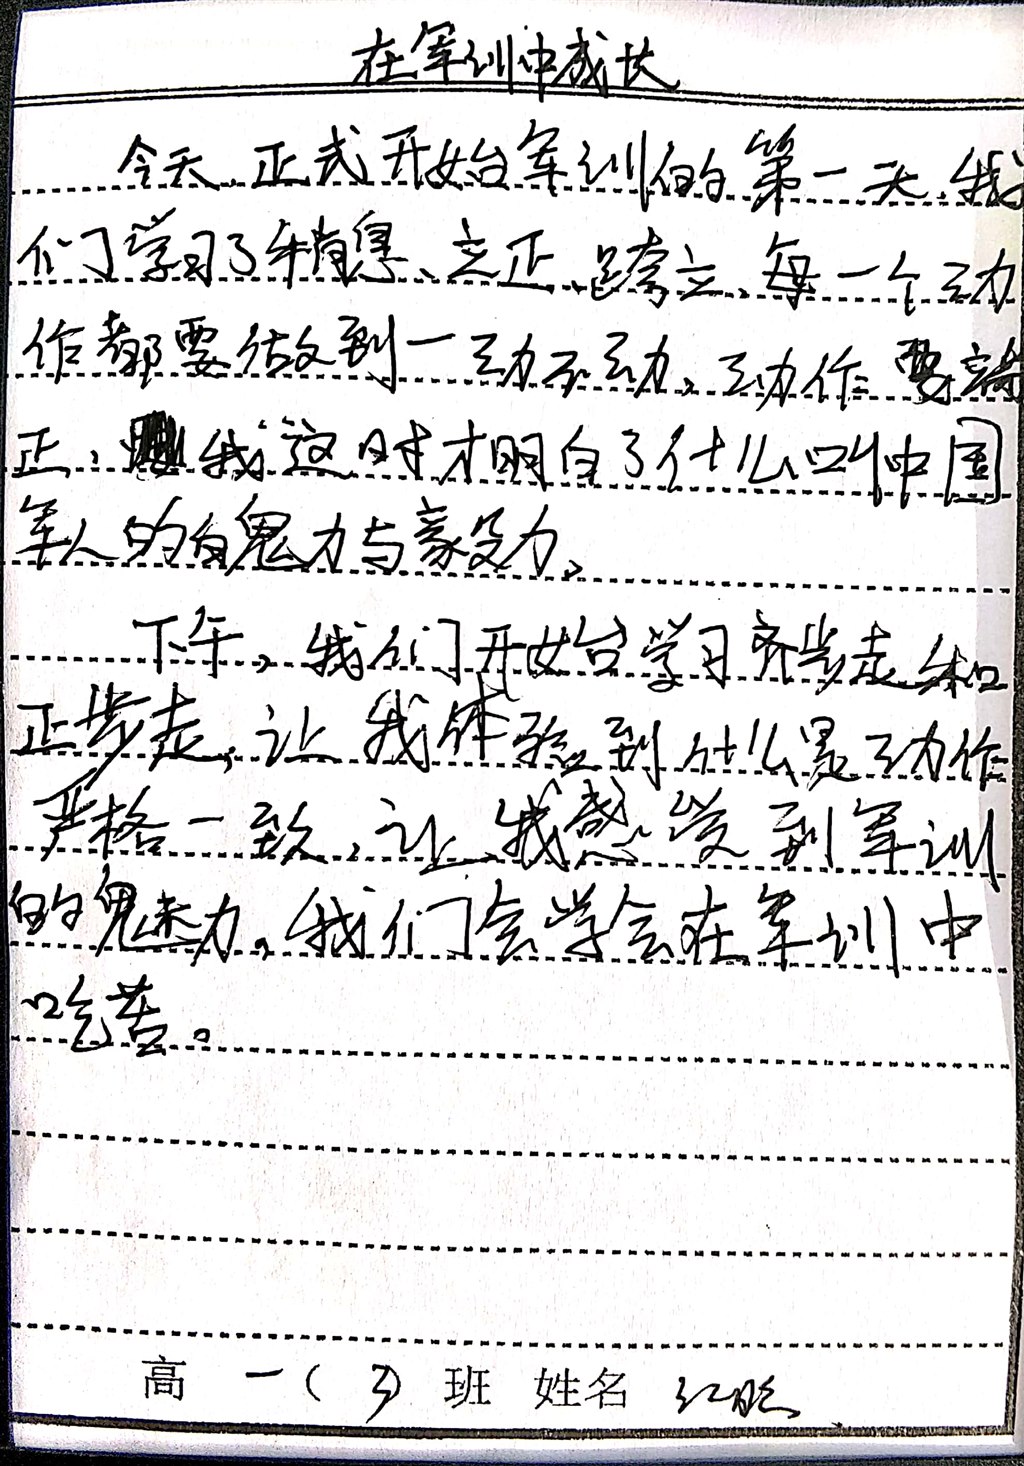 在军训中成长
今天,正式开始军训的第一天,我
们学习了稍息、立正、跨立,每一个动
作都要做到一动不动,动作要端
正,我这时才明白了什么叫中国
军人的魄力与毅力。
下午,我们开始学习齐步走和
正步走,让我体验到什么是动作
严格一致,让我感觉到军训
的魅力,我们会学会在军训中
吃苦。
高一(3)班 姓名